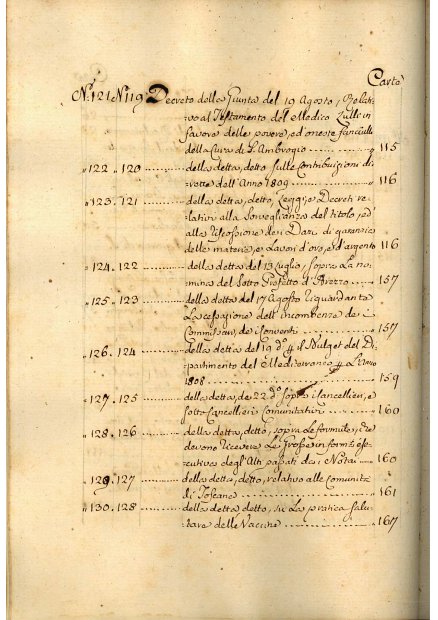 Carte
N.° 121. N.° 119. Decreto della Giunta del 19 Agosto, Relati-
vo al Testamento del Medico Lulli in
favore delle povere, ed oneste fanciulle
della Cura di S. Ambrogio ..... " 115
" 122. " 120. ..... della detta, detto sulle Contribuzioni di-
rette dell'Anno 1809 ..... " 116
" 123. 121. ..... della detta, detto, Decreti re-
lativi alla Sorveglianza del titolo, ed
alla Riscossione dei Dazi di garanzia
delle materie, e Lavori d'oro, e d'argento " 116
" 124. " 122. ..... della detta del 13 Luglio, sopra La no-
mina del Sotto Prefetto d'Arezzo ..... " 157
" 125. " 123 ..... della detta del 17 Agosto riguardante
La cessazione dell'incombenze dei
Commissari, de i Conventi ..... " 157
" 126. 124 ..... della detta del 19 d.° il Budget del Di-
partimento del Mediterraneo L'Anno
1808 ..... " 159
" 127. " 125 ..... della detta, de 22 d.° sopra i Cancellieri, e
Sotto Cancellieri Comunitativi ..... " 160
" 128. " 126 ..... della detta, detto, sopra Le formule, che
devono ricevere Le Grosse in forma ese-
cutiva degl'Atti passati da i Notai ..... " 160
" 129. " 127 ..... della detta, detto, relativo alle Comunità
di Toscana ..... " 161
" 130. " 128 ..... della detta detto, su La pratica salu-
tare delle Vaccine ..... " 167